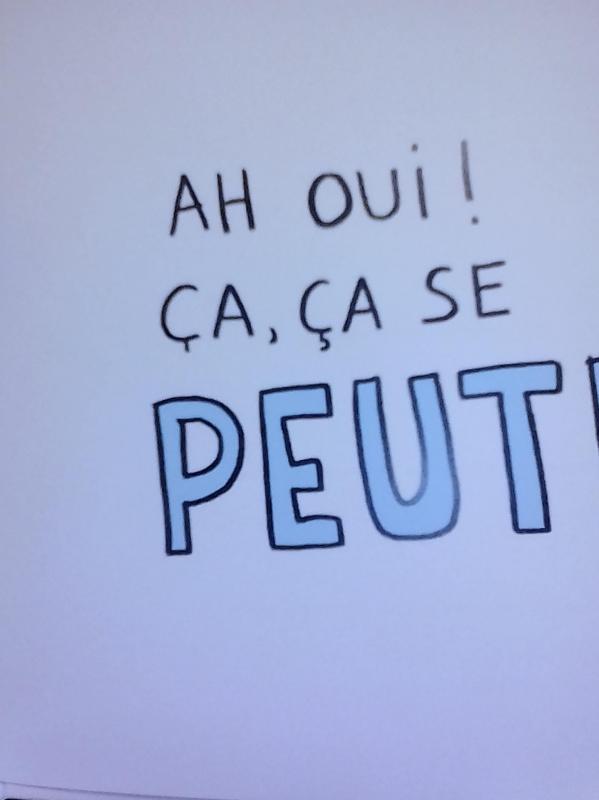 AH OUi !
ÇA, ÇA SE
PEUT